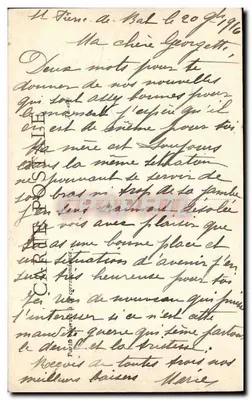 St Pierre-de-Bat le 20 9bre 1916
Ma chère Georgette,
Deux mots pour te
donner de nos nouvelles
qui sont assez bonnes pour
le moment j'espère qu'il
en est de même pour toi.
Ma mère est toujours
dans la même situation
ne pouvant se servir de
son bras ni trop de sa jambe
j'en suis désolée
vois avec plaisir que
tu as une bonne place et
une situation d'avenir j'en
suis très heureuse pour toi
rien de nouveau qui puisse
t'intéresser si ce n'est cette
maudite guerre qui sème partout
le deuil et la tristesse.
Reçois de toutes trois nos
meilleurs baisers Marie
CARTE POSTALE